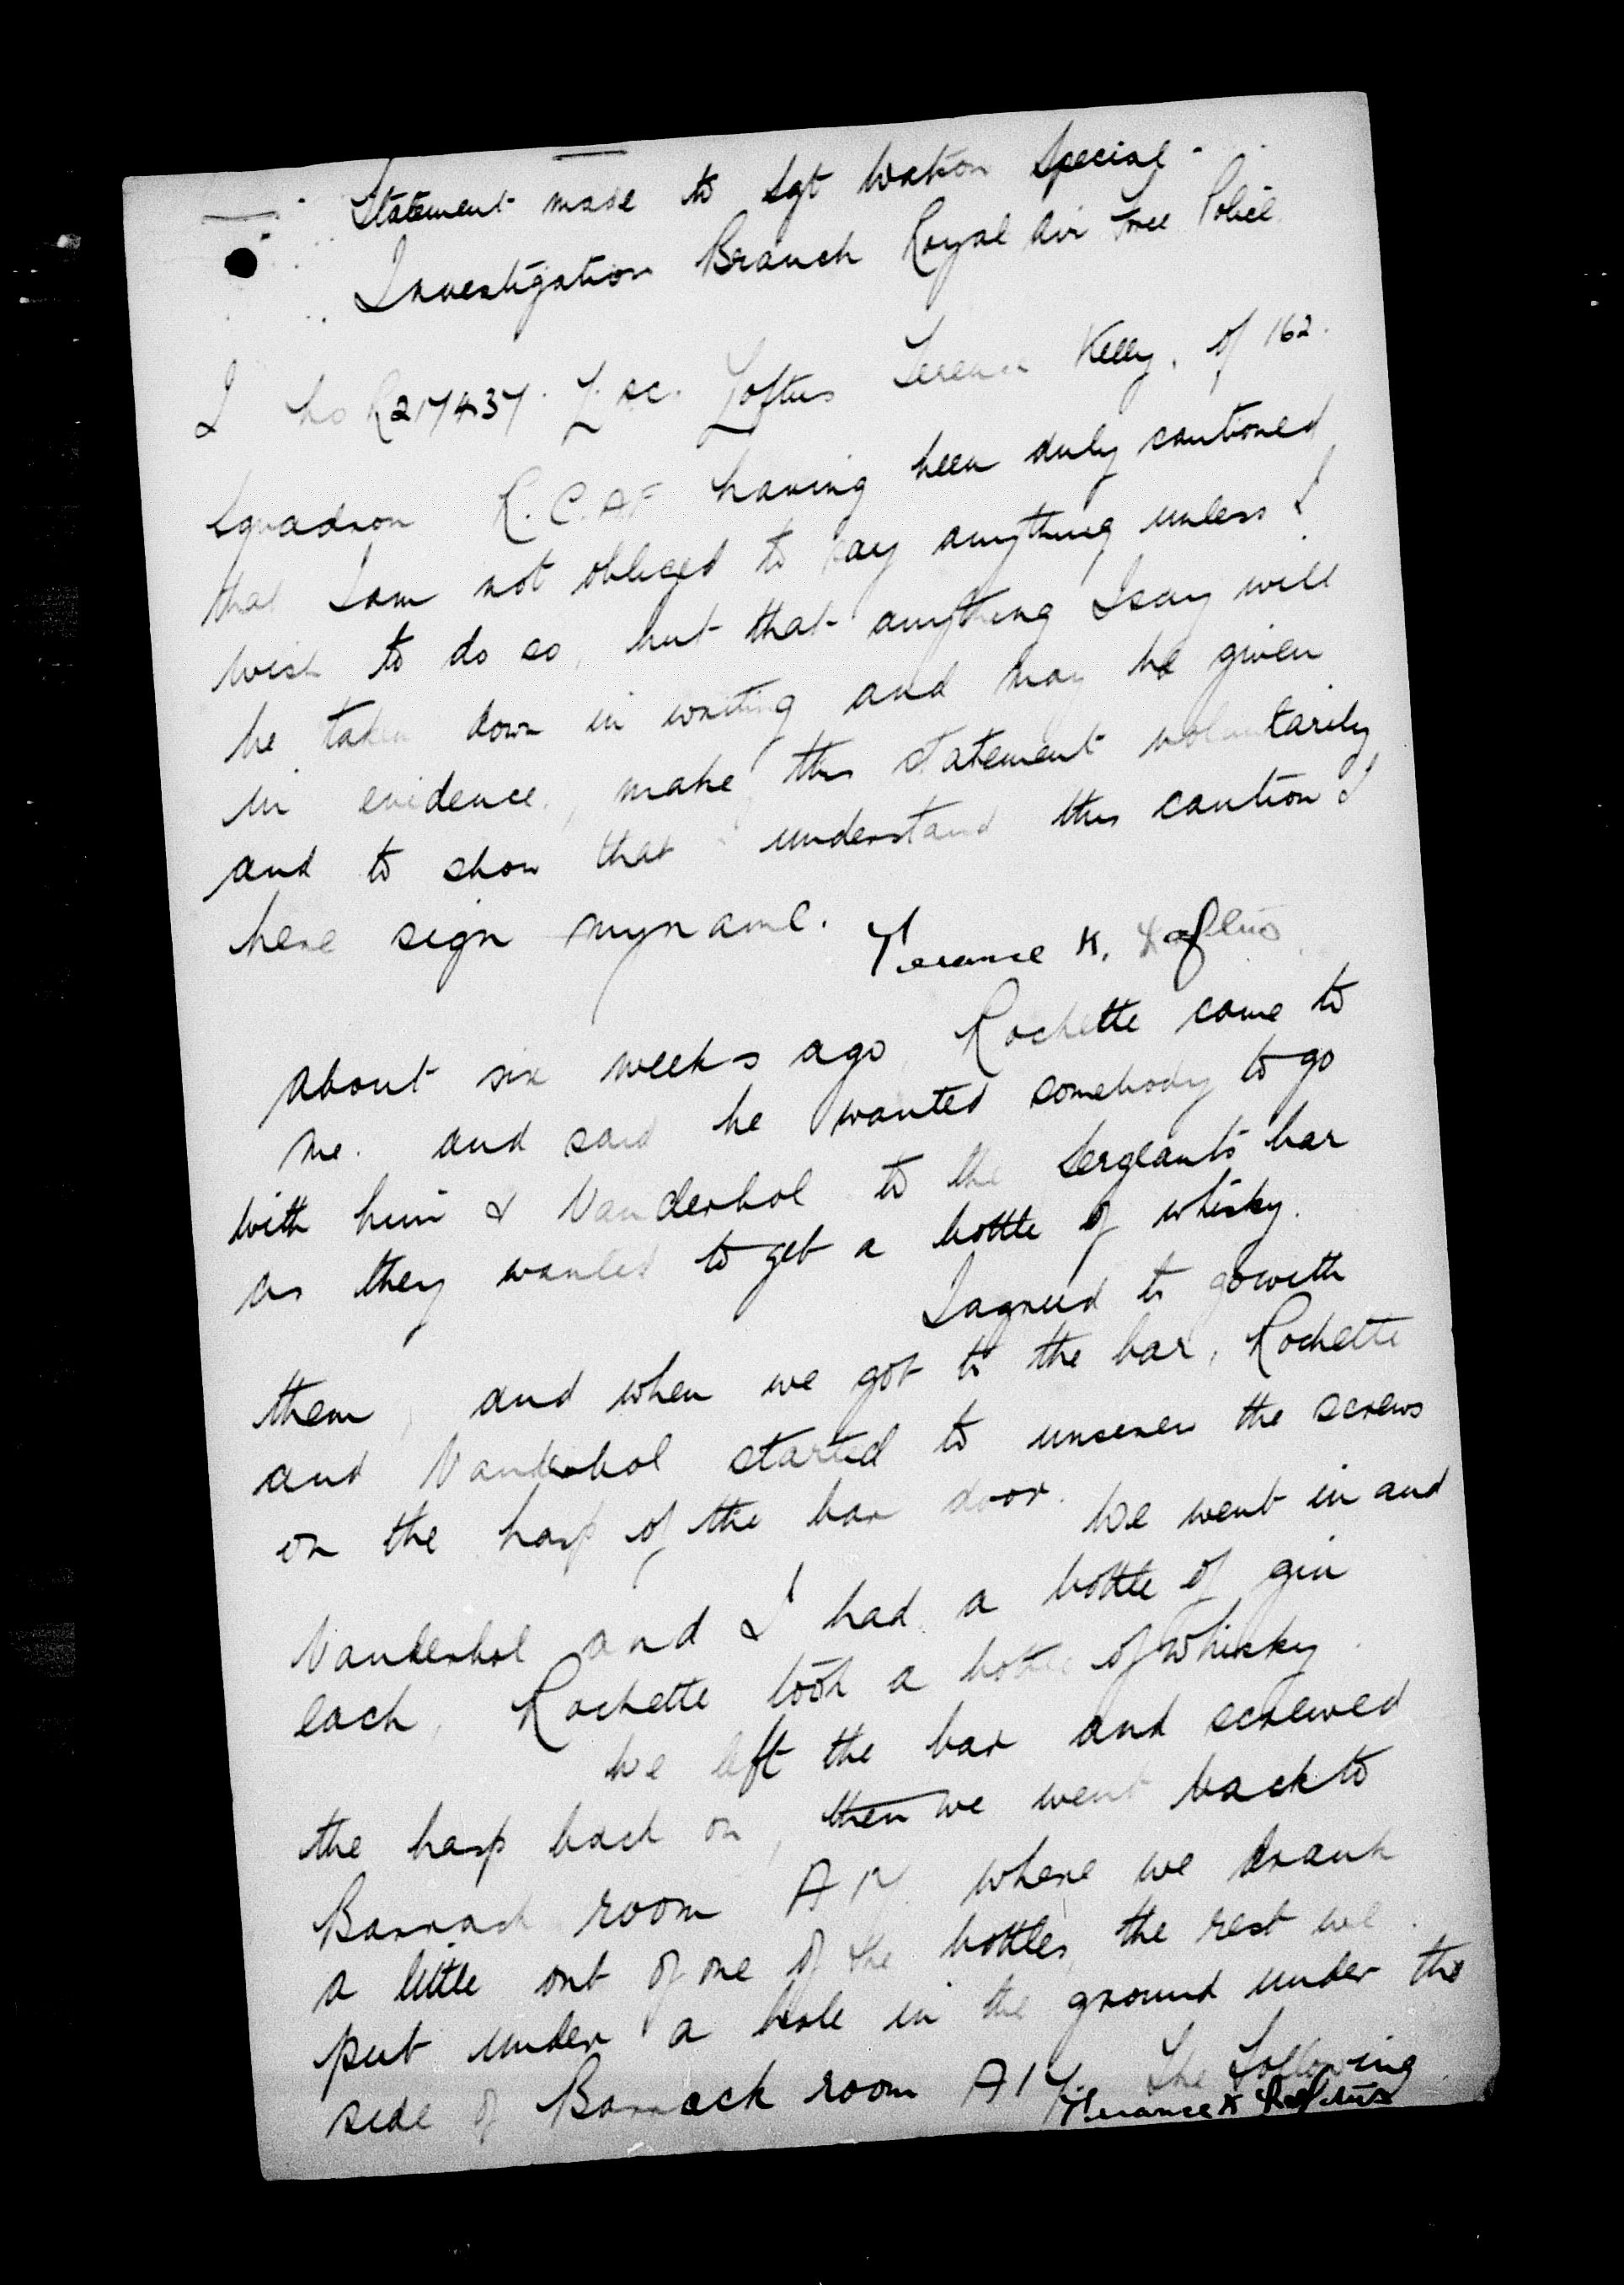 Statement made to Sgt Watson Special
Investigation Branch Royal Air Force Police
I No R217437 L.A.C. Loftus Terence Kelly, of 162
Squadron R.C.A.F having been duly cautioned
that I am not obliged to say anything unless I
wish to do so, but that anything I say will
be taken down in writing and may be given
in evidence, make this statement voluntarily
and to show that I understand this caution I
here sign my name. Terance K. Loftus
About six weeks ago, Rochette come to
me. and said he wanted somebody to go
with him & Vanderhol to the Sergeants bar
as they wanted to get a bottle of whisky.
I agreed to go with
them, and when we got to the bar, Rochette
and Vanderhol started to unscrew the screws
on the hasp of the bar door. We went in and
Vanderhol and I had a bottle of gin
each, Rochette took a bottle of whisky.
We left the bar and screwed
the hasp back on, then we went back to
Barrack room A where we drank
a little out of one of the bottles, the rest we
put under a hole in the ground under the
side of Barrack room A The following
Terance K Loftus